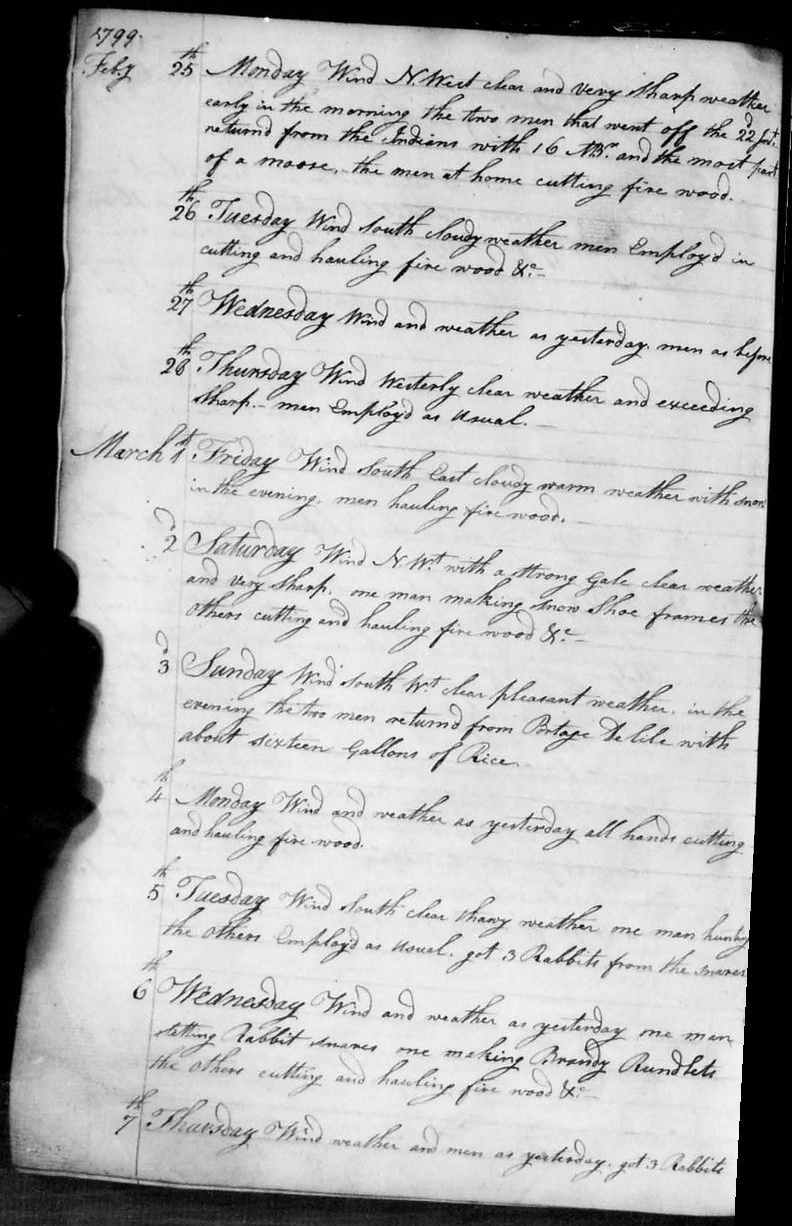 1799.
Feb.y 25th Monday Wind N.West clear and very sharp weather
early in the morning the two men that went off the 22d
returnd from the Indians with 16 MBr. and the most part
of a moose,- the men at home cutting fire wood.
26th Tuesday Wind South cloudy weather men Employ'd in
cutting and hauling fire wood &c.-
27th Wednesday Wind and weather as yesterday. men as before
28th Thursday Wind Westerly clear weather and exceeding
sharp.- men Employ'd as usual.-
March 1st Friday Wind South East cloudy warm weather with snow
in the evening. men hauling fire wood.
2d Saturday Wind N.Wt. with a strong Gale clear weather
and very sharp. one man making snow shoe frames the
others cutting and hauling fire wood &c-
3d Sunday Wind South Wt. clear pleasant weather. in the
evening the two men returnd from Portage De Lile with
about sixteen Gallons of Rice.
4th Monday Wind and weather as yesterday all hands cutting
and hauling fire wood.
5th Tuesday Wind South clear thawy weather one man hunting
the others Employd as usual. got 3 Rabbits from the snares
6th Wednesday Wind and weather as yesterday one man
setting Rabbit snares one making Brandy Rundlets
the others cutting and hauling fire wood &c-
7th Thursday Wind weather and men as yesterday. got 3 Rabbits